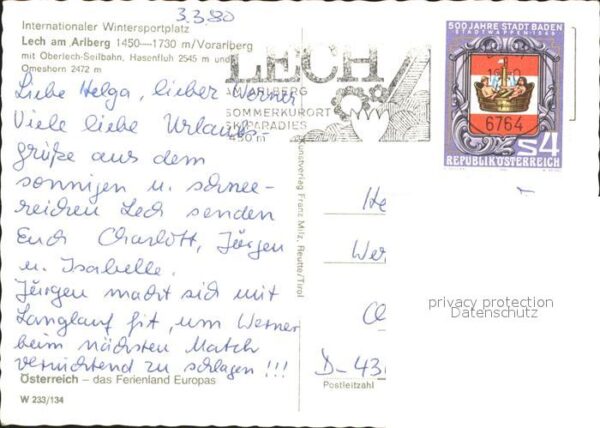 3.3.80
Internationaler Wintersportplatz
Lech am Arlberg 1450—1730 m/Vorarlberg
mit Oberlech-Seilbahn, Hasenfluh 2545 m und
Omeshorn 2472 m
Liebe Helga, lieber Werner
Viele liebe Urlaubs-
grüße aus dem
sonnigen u. schnee-
reichen Lech senden
Euch Charlott, Jürgen
u. Isabelle.
Jürgen macht sich mit
Langlauf fit, um Werner
beim nächsten Match
vernichtend zu schlagen!!!
Österreich – das Ferienland Europas
W 233/134
LECH
AM ARLBERG
SOMMERKURORT
SKIPARADIES
1450 m
Kunstverlag Franz Milz, Reutte/Tirol
500 JAHRE STADT BADEN
STADTWAPPEN · 1480
6764
S4
REPUBLIK ÖSTERREICH
He
Wer
D-43
Postleitzahl
privacy protection
Datenschutz